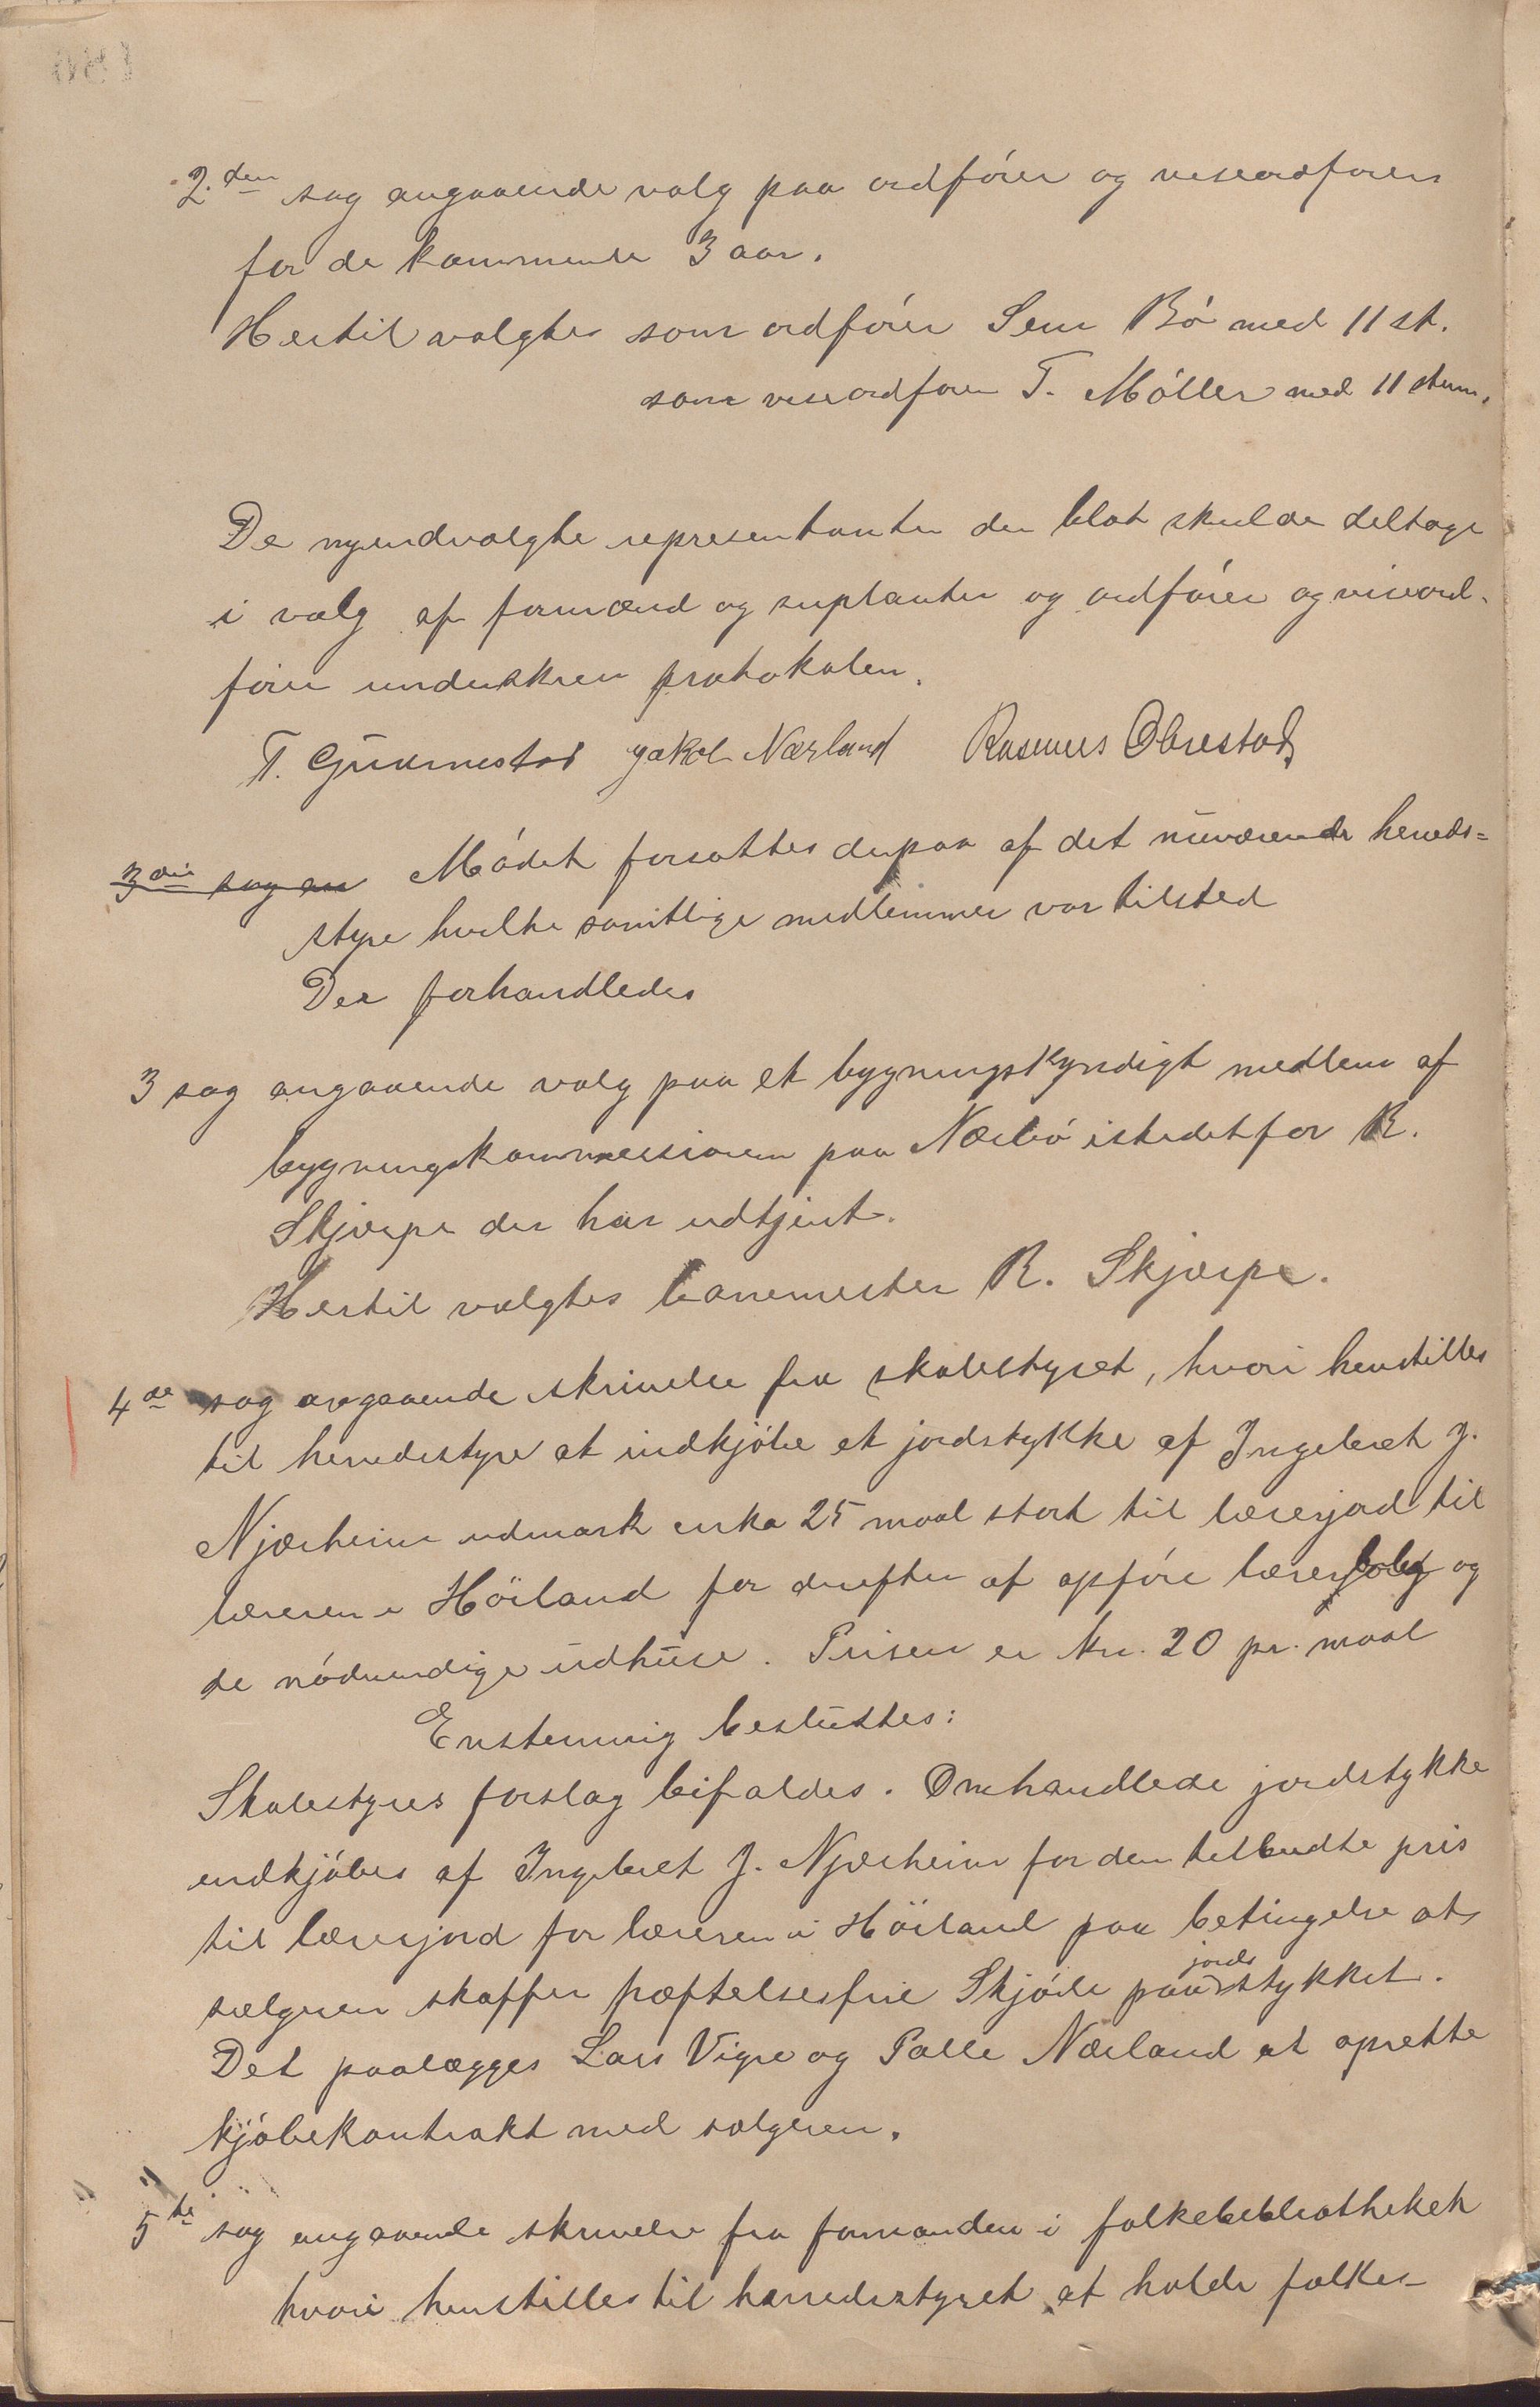 2.den sag angaaende valg paa ordfører og viseordfører
for de kommende 3 aar.
Hertil valgtes som ordfører Sem Bø med 11 st.
som viseordfører T. Møller med 11 stem.
De nyendvalgte representanter der blot skulde deltage
i valg af formænd og suplanter og ordfører og viseord-
fører underskrev protokolen.
T. Gudmestad Jakob Nærland Rasmus Obrestad
3die sag an Mødet forsattes derpaa af det nuværende hereds=
styre hvilke samtlige medlemmer var tilsted
Der forhandledes
3 sag angaaende valg paa et bygningskyndigt medlem af
bygningskommessionen paa Nærbø istedetfor R.
Skjærpe der har udtjent.
Hertil valgtes banemester R. Skjærpe.
4de sag angaaende skrivelse fra skolestyret, hvori henstilles
til heredsstyre at indkjøbe et jordstykke af Ingebret J.
Njærheim udmark cirka 25 maal stort til lærerjord til
læreren i Höiland for derefter at opføre lærerbolig og
de nødvendige udhuse. Prisen er kr. 20 pr. maal
Enstemmig besluttes:
Skolestyres forslag bifaldes. Omhandlede jordstykke
indkjøbes af Ingebret J. Njærheim for den tilbudte pris
til lærerjord for læreren i Höiland paa betingelse at
sælgeren skaffer hæftelsesfrie Skjøde paa jordstykket.
Det paalægges Lars Vigre og Palle Nærland at oprette
kjøbekontrakt med sælgeren.
5te sag angaaende skrivelse fra formanden i folkebibliotheket
hvori henstilles til herredsstyret at holde folke-